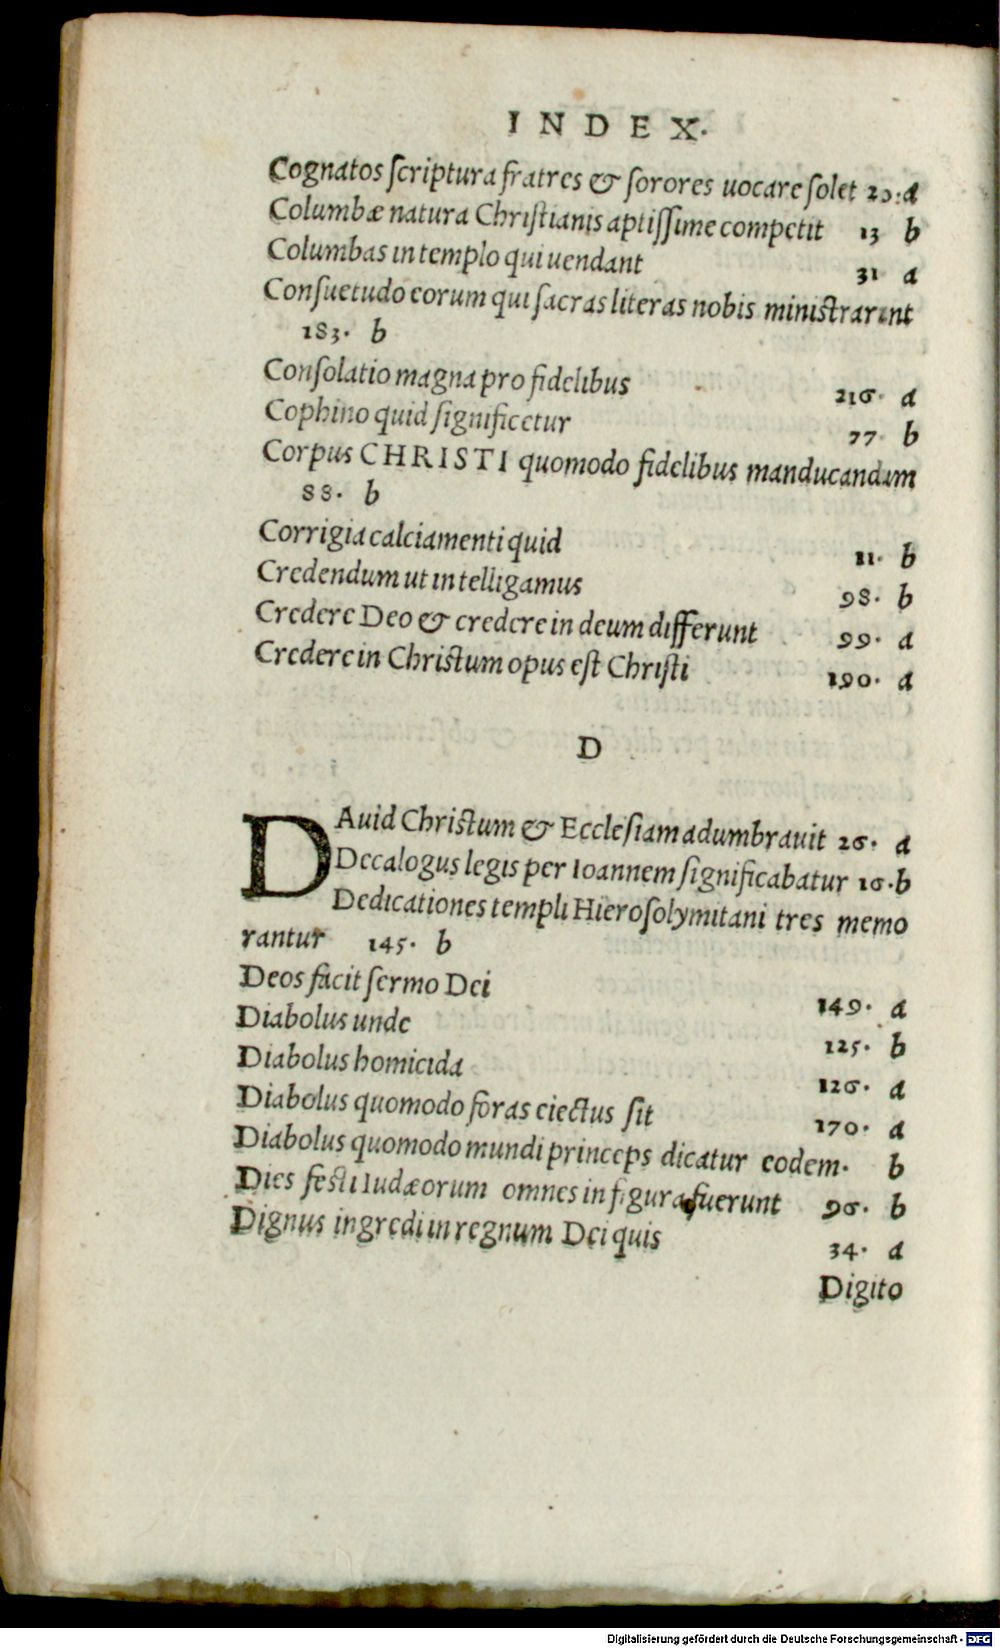 INDEX.
Cognatos ſcriptura fratres & ſorores uocare ſolet 20. a
Columbæ natura Chriſtianis aptiſſime competit 13 b
Columbas in templo qui uendant 31 a
Conſuetudo eorum qui ſacras literas nobis miniſtrarunt
183. b
Conſolatio magna pro fidelibus 216. a
Cophino quid ſignificetur 77. b
Corpus CHRISTI quomodo fidelibus manducandum
88. b
Corrigia calciamenti quid 11. b
Credendum ut intelligamus 98. b
Credere Deo & credere in deum differunt 99. a
Credere in Chriſtum opus eſt Chriſti 190. a
D
DAuid Chriſtum & Eccleſiam adumbrauit 26. a
Decalogus legis per Ioannem ſignificabatur 16. b
Dedicationes templi Hieroſolymitani tres memo
rantur 145. b
Deos facit ſermo Dei 149. a
Diabolus unde 125. b
Diabolus homicida 126. a
Diabolus quomodo foras eiectus ſit 170. a
Diabolus quomodo mundi princeps dicatur eodem. b
Dies feſti Iudæorum omnes in figura fuerunt 96. b
Dignus ingredi in regnum Dei quis 34. a
Digito
Digitalisierung gefördert durch die Deutsche Forschungsgemeinschaft - DFG